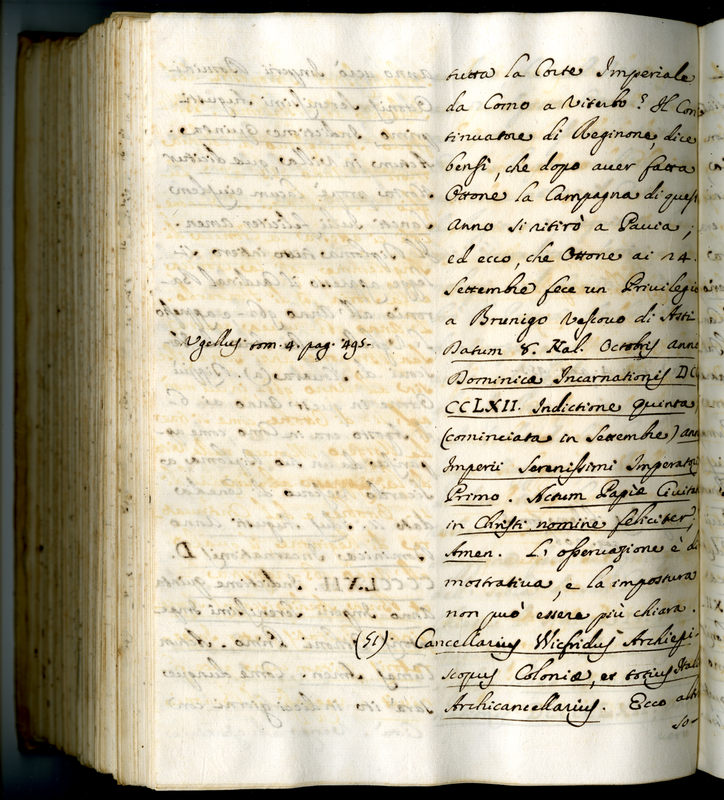 tutta la Corte Imperiale
da Como a Viterbo? Il Con
tinuatore di Reginone, dice
bensì, che dopo aver fatta
Ottone la Campagna di quest
Anno si ritirò a Pavia;
ed ecco, che Ottone ai 24.
Settembre fece un Privilegio
a Brunigo Vescovo di Asti
Vgellus tom. 4. pag. 495.
Datum 8. Kal. Octobris anno
Dominicæ Incarnationis DC
CCLXII. Indictione quinta
(cominciata in Settembre) ann
Imperii Serenissimi Imperatoris
Primo. Actum Papiæ Civitat
in Christi nomine feliciter,
Amen. L'osservazione è di
mostrativa, e la impostura
non può essere più chiara.
(51). Cancellarius Wicfridus Archiepi-
scopus Coloniæ, et totius Itali
Archicancellarius. Ecco alt
so-